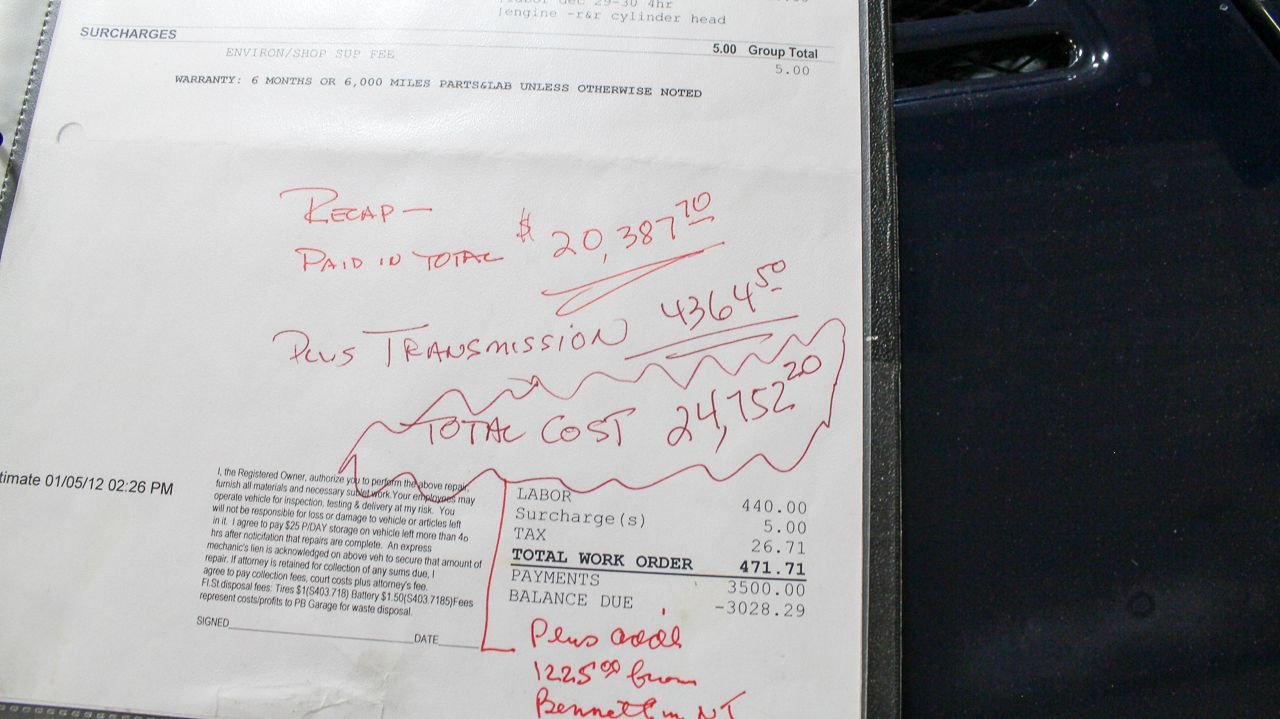 29-30 4hr
|engine -r&r cylinder head
SURCHARGES
5.00 Group Total
ENVIRON/SHOP SUP FEE
5.00
WARRANTY: 6 MONTHS OR 6,000 MILES PARTS&LAB UNLESS OTHERWISE NOTED
RECAP —
PAID IN TOTAL $ 20,387 70
PLUS TRANSMISSION 4364 50
TOTAL COST 24,752 20
timate 01/05/12 02:26 PM
I, the Registered Owner, authorize you to perform the above repair,
furnish all materials and necessary sublet work.Your employees may
operate vehicle for inspection, testing & delivery at my risk. You
will not be responsible for loss or damage to vehicle or articles left
in it. I agree to pay $25 P/DAY storage on vehicle left more than 48
hrs after noticifation that repairs are complete. An express
mechanic's lien is acknowledged on above veh to secure that amount of
repair. If attorney is retained for collection of any sums due, I
agree to pay collection fees, court costs plus attorney's fee.
Fl.St.disposal fees: Tires $1(S403.718) Battery $1.50(S403.7185)Fees
represent costs/profits to PB Garage for waste disposal.
SIGNED DATE
LABOR 440.00
Surcharge(s) 5.00
TAX 26.71
TOTAL WORK ORDER 471.71
PAYMENTS 3500.00
BALANCE DUE -3028.29
Plus addl
1225 00 from
Bennett in NJ